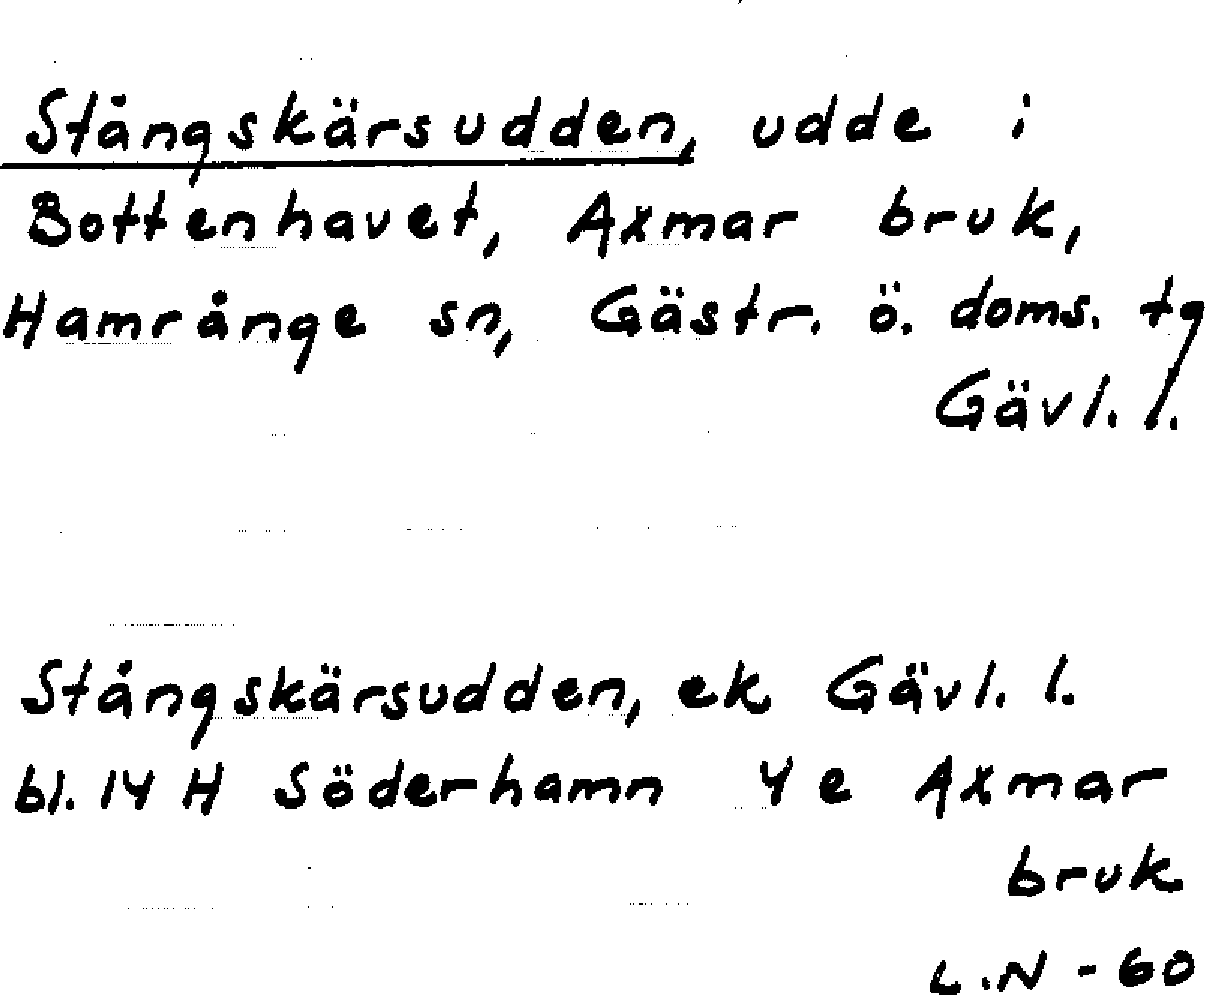 Stångskärsudden, udde i
Bottenhavet, Axmar bruk,
Hamrånge sn, Gästr. ö. doms. tg
Gävl. l.
Stångskärsudden, ek Gävl. l.
bl. 14 H Söderhamn 4 e Axmar
bruk
L.N - 60